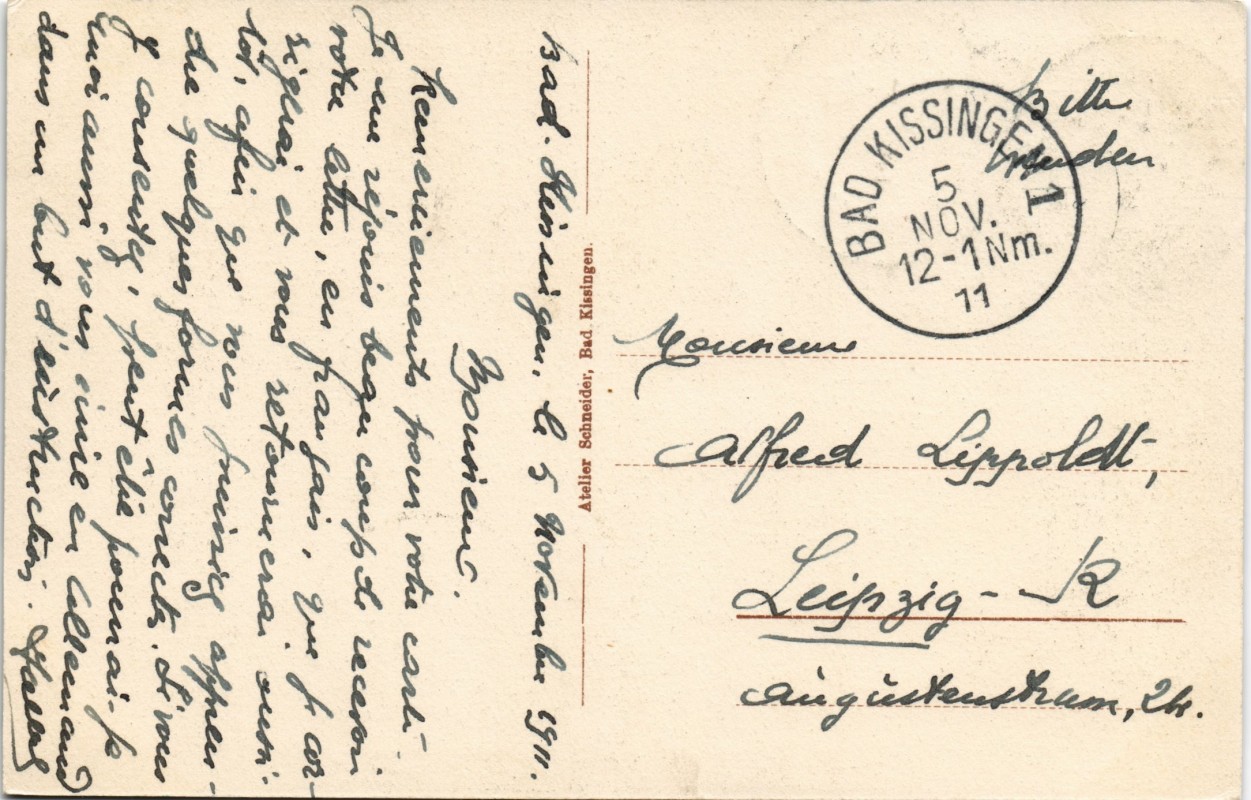 Bad. Kissingen, le 5 Novembre 1911.
Monsieur.
Remerciements pour votre carte.
Je me réjouis beaucoup de recevoir
votre lettre, en français, que je cor-
rigerai et vous retournerai aussi-
tôt, afin que vous puissiez appren-
dre quelques formes correctes. Si vous
y consentez, peut être pourrai-je
moi aussi vous écrire en allemand
dans un but d'instruction.
Atelier Schneider, Bad Kissingen.
Bitte
wenden
BAD KISSINGEN 1
5
NOV.
12-1Nm.
11
Monsieur
Alfred Lippoldt,
Leipzig - R
Augustenstrasse,